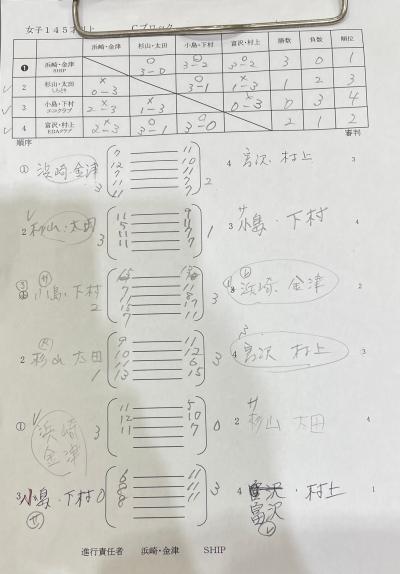 女子145 Cブロック
浜崎・金津 杉山・太田 小島・下村 富沢・村上 勝数 負数 順位
1 浜崎・金津 SHIP ○ 3-0 ○ 3-2 ○ 3-2 3 0 1
2 杉山・太田 × 0-3 ○ 3-1 × 1-3 1 2 3
3 小島・下村 × 2-3 × 1-3 × 0-3 0 3 4
4 富沢・村上 × 2-3 ○ 3-1 ○ 3-0 2 1 2
順序 審判
① 浜崎・金津 3 2 4 富沢・村上 3
7 11
7 11
11 7
2 杉山・太田 3 1 3 小島・下村 4
11 7
小島・下村 2 3 浜崎・金津 2
7 11
7 11
2 杉山 太田 1 3 4 富沢 村上 3
9 11
10 12
11 6
13 15
① 浜崎 金津 3 0 2 杉山 太田 4
11 5
12 10
11 7
3 小島・下村 0 3 4 富沢・村上 1
6 11
8 11
8 11
富沢
進行責任者 浜崎・金津 SHIP